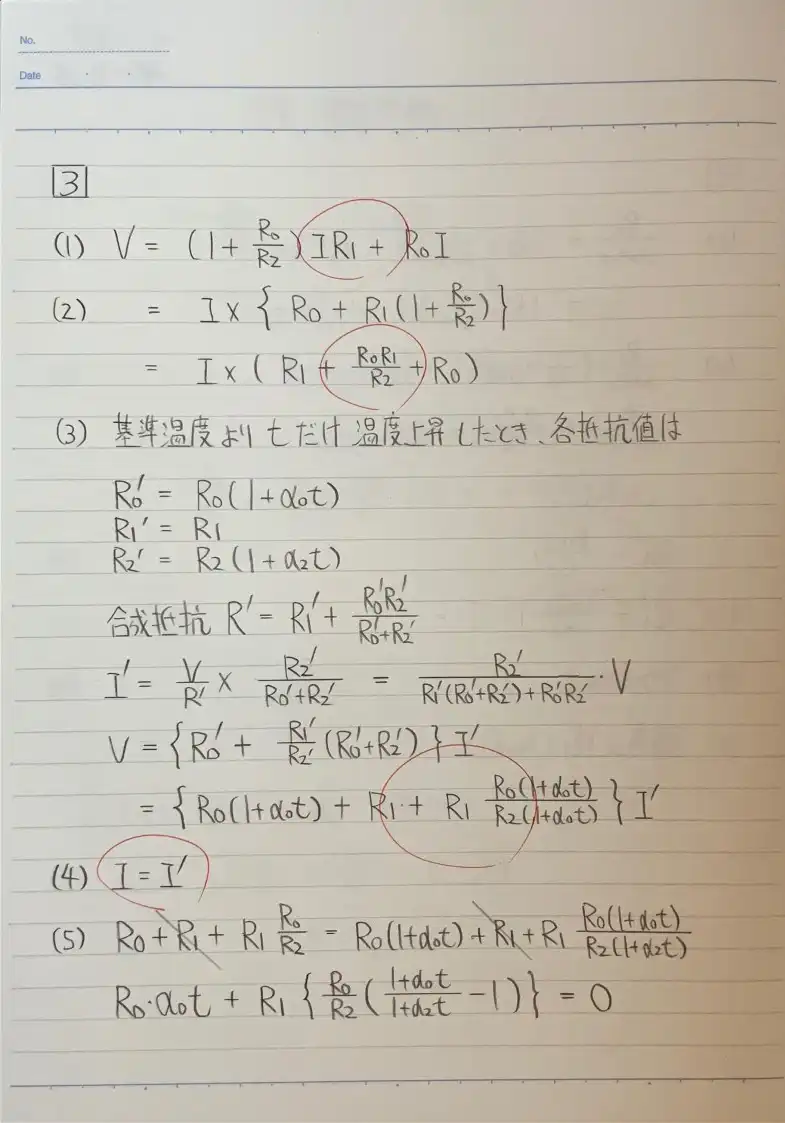 No.
Date
3
(1) V = (1 + R₀/R₂) I R₁ + R₀ I
(2) = I × { R₀ + R₁ (1 + R₀/R₂) }
= I × ( R₁ + R₀R₁/R₂ + R₀ )
(3) 基準温度より t だけ 温度上昇したとき、各抵抗値は
R₀' = R₀ ( 1 + α₀t )
R₁' = R₁
R₂' = R₂ ( 1 + α₂t )
合成抵抗 R' = R₁' + R₀'R₂'/(R₀'+R₂')
I' = V/R' × R₂'/(R₀'+R₂') = R₂'/(R₁'(R₀'+R₂')+R₀'R₂') · V
V = { R₀' + R₁'/R₂' (R₀'+R₂') } I'
= { R₀(1+α₀t) + R₁ + R₁ R₀(1+α₀t)/R₂(1+α₀t) } I'
(4) I = I'
(5) R₀ + R₁ + R₁ R₀/R₂ = R₀(1+α₀t) + R₁ + R₁ R₀(1+α₀t)/R₂(1+α₂t)
R₀·α₀t + R₁ { R₀/R₂ ( (1+α₀t)/(1+α₂t) − 1 ) } = 0